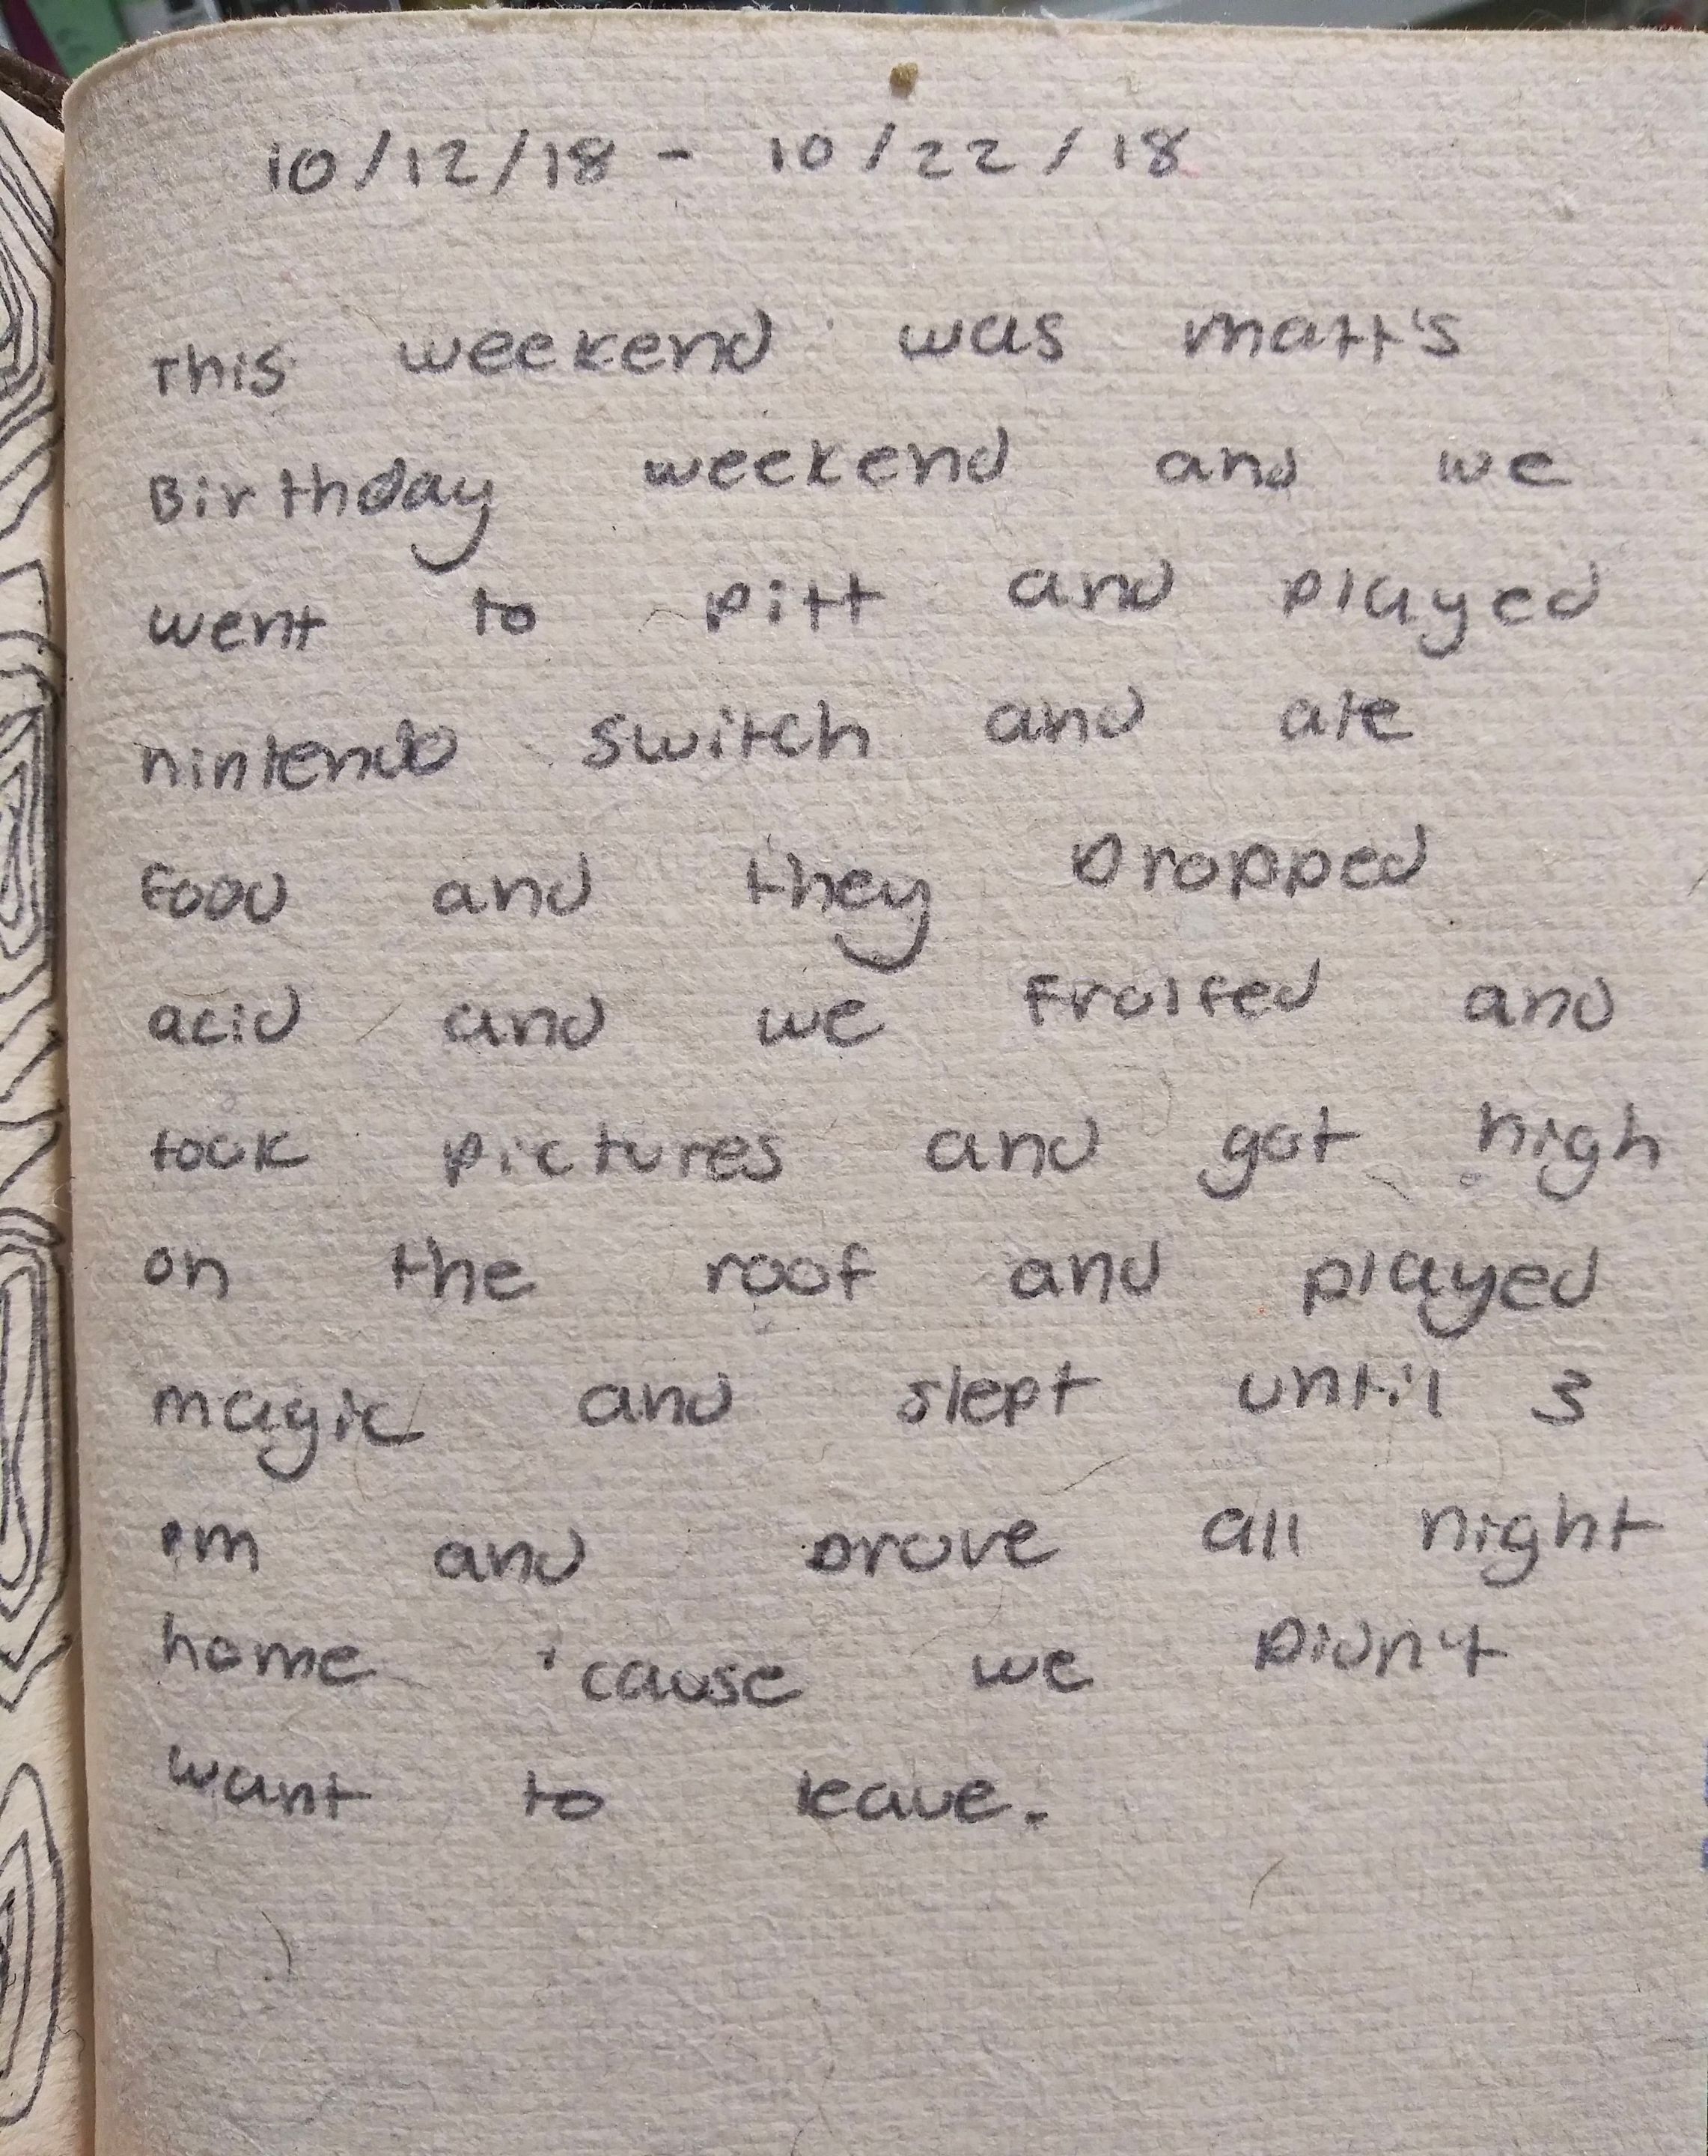 10/12/18 - 10/22/18
This weekend was matt's
Birthday weekend and we
went to pitt and played
nintendo switch and ate
Food and they Dropped
acid and we Frolfed and
took pictures and got high
on the roof and played
magic and slept until 3
pm and Drove all night
home 'cause we Didn't
want to leave.